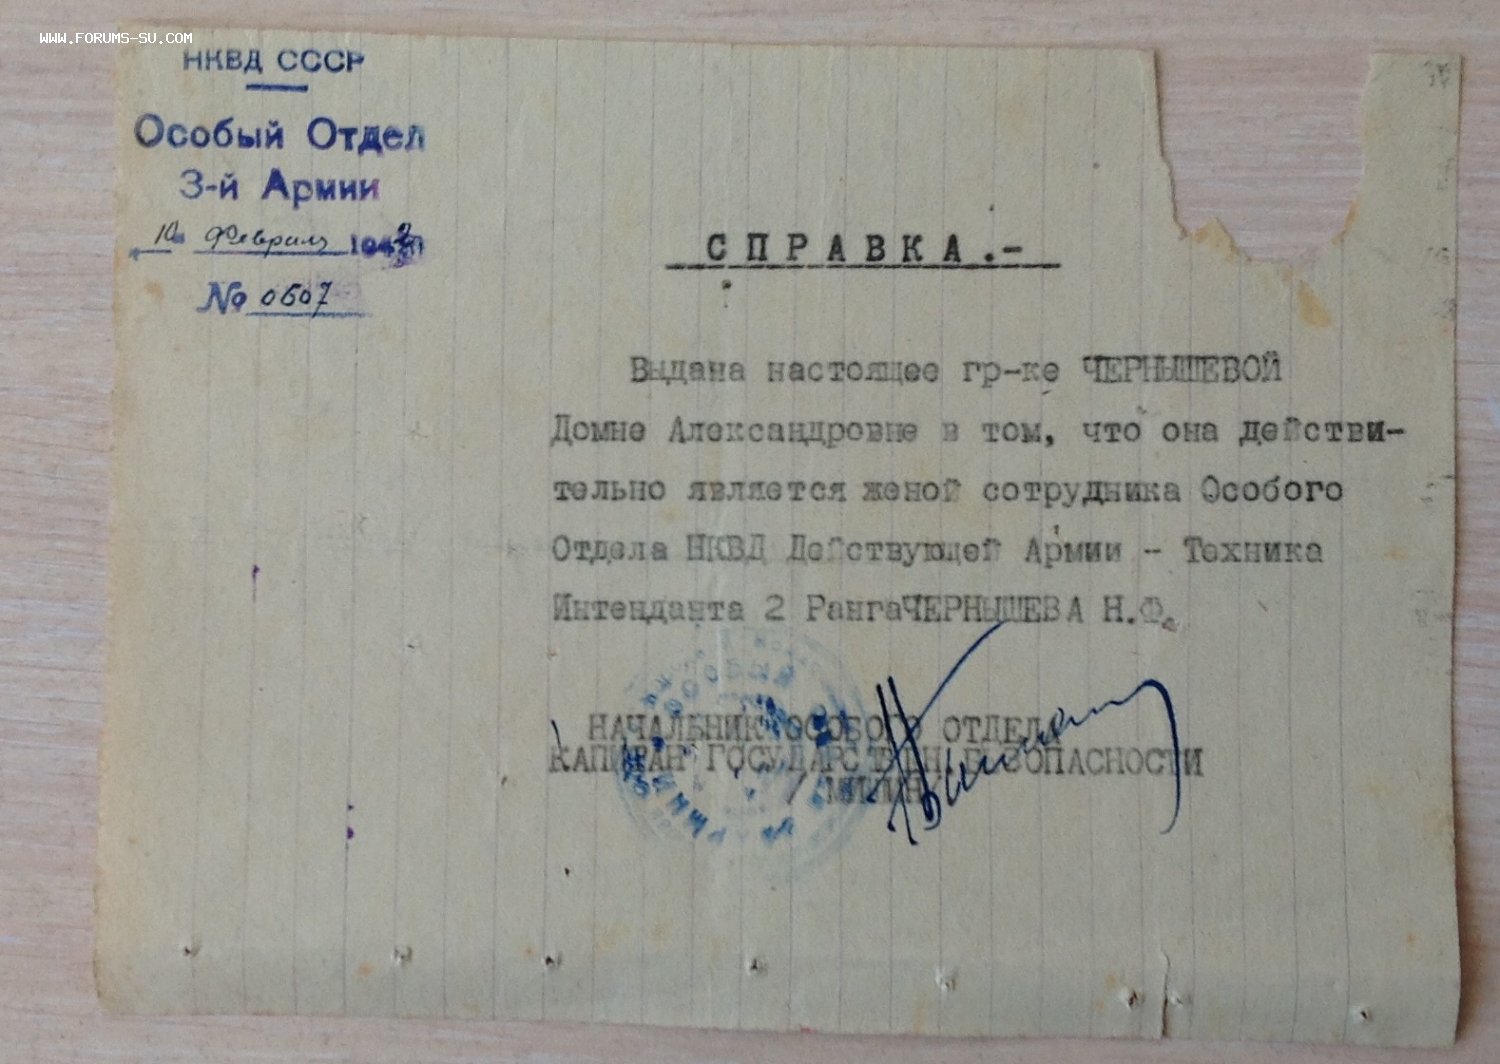 WWW.FORUMS-SU.COM
НКВД СССР
Особый Отдел
3-й Армии
10 Февраля 1942
№ 0607
СПРАВКА.-
Выдана настоящее гр-ке ЧЕРНЫШЕВОЙ
Домне Александровне в том, что она действи-
тельно является женой сотрудника Особого
Отдела НКВД Действующей Армии - Техника
Интенданта 2 РангаЧЕРНЫШЕВА Н.Ф.
НАЧАЛЬНИК ОСОБОГО ОТДЕЛА
КАПИТАН ГОСУДАРСТВЕН. БЕЗОПАСНОСТИ